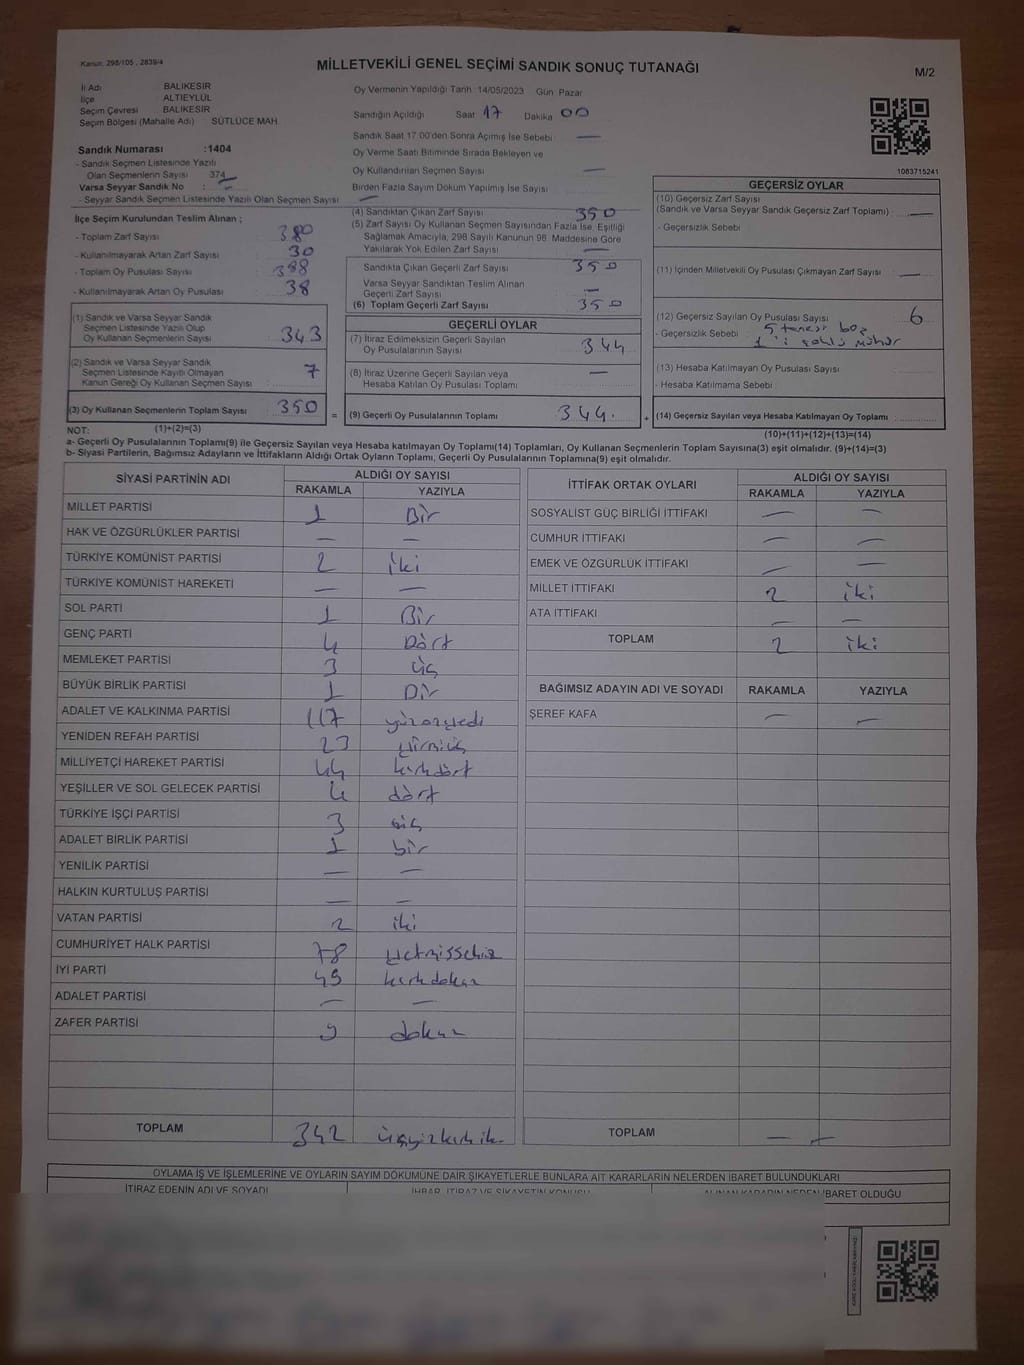 Kanun: 298/105 , 2839/4
MİLLETVEKİLİ GENEL SEÇİMİ SANDIK SONUÇ TUTANAĞI
M/2
İl Adı : BALIKESİR
İlçe : ALTIEYLÜL
Seçim Çevresi : BALIKESİR
Seçim Bölgesi (Mahalle Adı) : SÜTLÜCE MAH.
Oy Vermenin Yapıldığı Tarih : 14/05/2023 Gün Pazar
Sandığın Açıldığı Saat 17 Dakika 00
Sandık Saat 17:00'den Sonra Açılmış İse Sebebi : —
Oy Verme Saati Bitiminde Sırada Bekleyen ve
Oy Kullandırılan Seçmen Sayısı —
Birden Fazla Sayım Döküm Yapılmış İse Sayısı
Sandık Numarası :1404
- Sandık Seçmen Listesinde Yazılı
Olan Seçmenlerin Sayısı 374
Varsa Seyyar Sandık No : —
- Seyyar Sandık Seçmen Listesinde Yazılı Olan Seçmen Sayısı : —
1083715241
İlçe Seçim Kurulundan Teslim Alınan ;
- Toplam Zarf Sayısı 380
- Kullanılmayarak Artan Zarf Sayısı 30
- Toplam Oy Pusulası Sayısı 388
- Kullanılmayarak Artan Oy Pusulası 38
(1) Sandık ve Varsa Seyyar Sandık
Seçmen Listesinde Yazılı Olup
Oy Kullanan Seçmenlerin Sayısı 343
(2) Sandık ve Varsa Seyyar Sandık
Seçmen Listesinde Kayıtlı Olmayan
Kanun Gereği Oy Kullanan Seçmen Sayısı 7
(3) Oy Kullanan Seçmenlerin Toplam Sayısı : 350 =
(4) Sandıktan Çıkan Zarf Sayısı 350
(5) Zarf Sayısı Oy Kullanan Seçmen Sayısından Fazla İse, Eşitliği
Sağlamak Amacıyla, 298 Sayılı Kanunun 98. Maddesine Göre
Yakılarak Yok Edilen Zarf Sayısı —
Sandıkta Çıkan Geçerli Zarf Sayısı 350
Varsa Seyyar Sandıktan Teslim Alınan
Geçerli Zarf Sayısı —
(6) Toplam Geçerli Zarf Sayısı 350
GEÇERLİ OYLAR
(7) İtiraz Edilmeksizin Geçerli Sayılan
Oy Pusulalarının Sayısı 344
(8) İtiraz Üzerine Geçerli Sayılan veya
Hesaba Katılan Oy Pusulası Toplamı —
(9) Geçerli Oy Pusulalarının Toplamı 344. +
GEÇERSİZ OYLAR
(10) Geçersiz Zarf Sayısı
(Sandık ve Varsa Seyyar Sandık Geçersiz Zarf Toplamı) : —
- Geçersizlik Sebebi :
(11) İçinden Milletvekili Oy Pusulası Çıkmayan Zarf Sayısı : —
(12) Geçersiz Sayılan Oy Pusulası Sayısı 6
- Geçersizlik Sebebi : 5 tanesi boş
mühür
(13) Hesaba Katılmayan Oy Pusulası Sayısı :
- Hesaba Katılmama Sebebi :
(14) Geçersiz Sayılan veya Hesaba Katılmayan Oy Toplamı
NOT: (1)+(2)=(3)
(10)+(11)+(12)+(13)=(14)
a- Geçerli Oy Pusulalarının Toplamı(9) ile Geçersiz Sayılan veya Hesaba katılmayan Oy Toplamı(14) Toplamları, Oy Kullanan Seçmenlerin Toplam Sayısına(3) eşit olmalıdır. (9)+(14)=(3)
b- Siyasi Partilerin, Bağımsız Adayların ve İttifakların Aldığı Ortak Oyların Toplamı, Geçerli Oy Pusulalarının Toplamına(9) eşit olmalıdır.
SİYASİ PARTİNİN ADI ALDIĞI OY SAYISI
RAKAMLA YAZIYLA
MİLLET PARTİSİ 1 Bir
HAK VE ÖZGÜRLÜKLER PARTİSİ — —
TÜRKİYE KOMÜNİST PARTİSİ 2 iki
TÜRKİYE KOMÜNİST HAREKETİ — —
SOL PARTİ 1 Bir
GENÇ PARTİ 4 Dört
MEMLEKET PARTİSİ 3 üç
BÜYÜK BİRLİK PARTİSİ 1 Bir
ADALET VE KALKINMA PARTİSİ 117 yüzonyedi
YENİDEN REFAH PARTİSİ 23 yirmiüç
MİLLİYETÇİ HAREKET PARTİSİ 44 kırkdört
YEŞİLLER VE SOL GELECEK PARTİSİ 4 dört
TÜRKİYE İŞÇİ PARTİSİ 3 üç
ADALET BİRLİK PARTİSİ 1 bir
YENİLİK PARTİSİ — —
HALKIN KURTULUŞ PARTİSİ — —
VATAN PARTİSİ 2 iki
CUMHURİYET HALK PARTİSİ 78 yetmişsekiz
İYİ PARTİ 49 kırkdokuz
ADALET PARTİSİ — —
ZAFER PARTİSİ 9 dokuz
TOPLAM 342 üçyüzkırkiki
İTTİFAK ORTAK OYLARI ALDIĞI OY SAYISI
RAKAMLA YAZIYLA
SOSYALİST GÜÇ BİRLİĞİ İTTİFAKI — —
CUMHUR İTTİFAKI — —
EMEK VE ÖZGÜRLÜK İTTİFAKI — —
MİLLET İTTİFAKI 2 iki
ATA İTTİFAKI — —
TOPLAM 2 iki
BAĞIMSIZ ADAYIN ADI VE SOYADI RAKAMLA YAZIYLA
ŞEREF KAFA — —
TOPLAM — —
OYLAMA İŞ VE İŞLEMLERİNE VE OYLARIN SAYIM DÖKÜMÜNE DAİR ŞİKAYETLERLE BUNLARA AİT KARARLARIN NELERDEN İBARET BULUNDUKLARI
İTİRAZ EDENİN ADI VE SOYADI İHBAR, İTİRAZ VE ŞİKAYETİN KONUSU ALINAN KARARIN NEDEN İBARET OLDUĞU